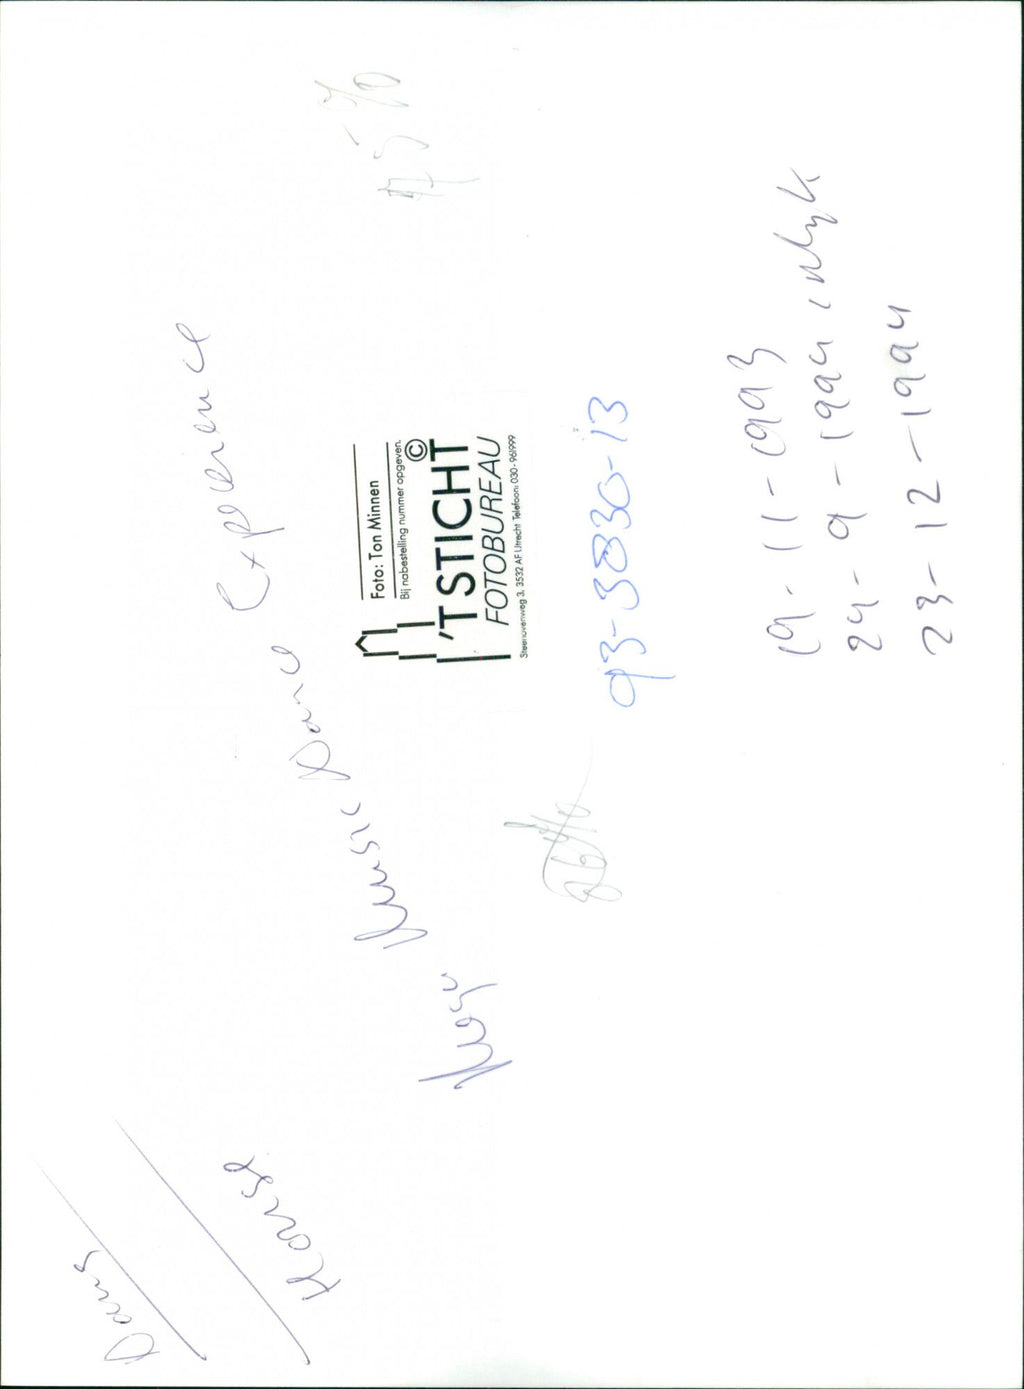 Dans
House
Mega Music Dance Experience
Foto: Ton Minnen
Bij nabestelling nummer opgeven.
©
'T STICHT
FOTOBUREAU
Steenovenweg 3, 3532 AF Utrecht Telefoon: 030-961999
93-3830-13
19-11-1993
24-9-1994
23-12-1994